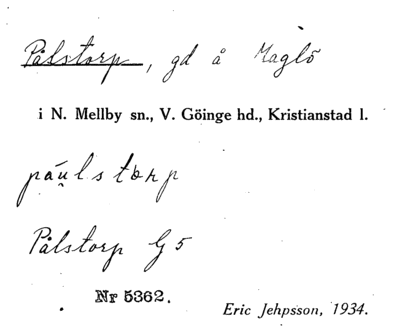 Pålstorp, gd å Maglö
i N. Mellby sn., V. Göinge hd., Kristianstad l.
Pålstorp G 5
Nr 5362.
Eric Jehpsson, 1934.